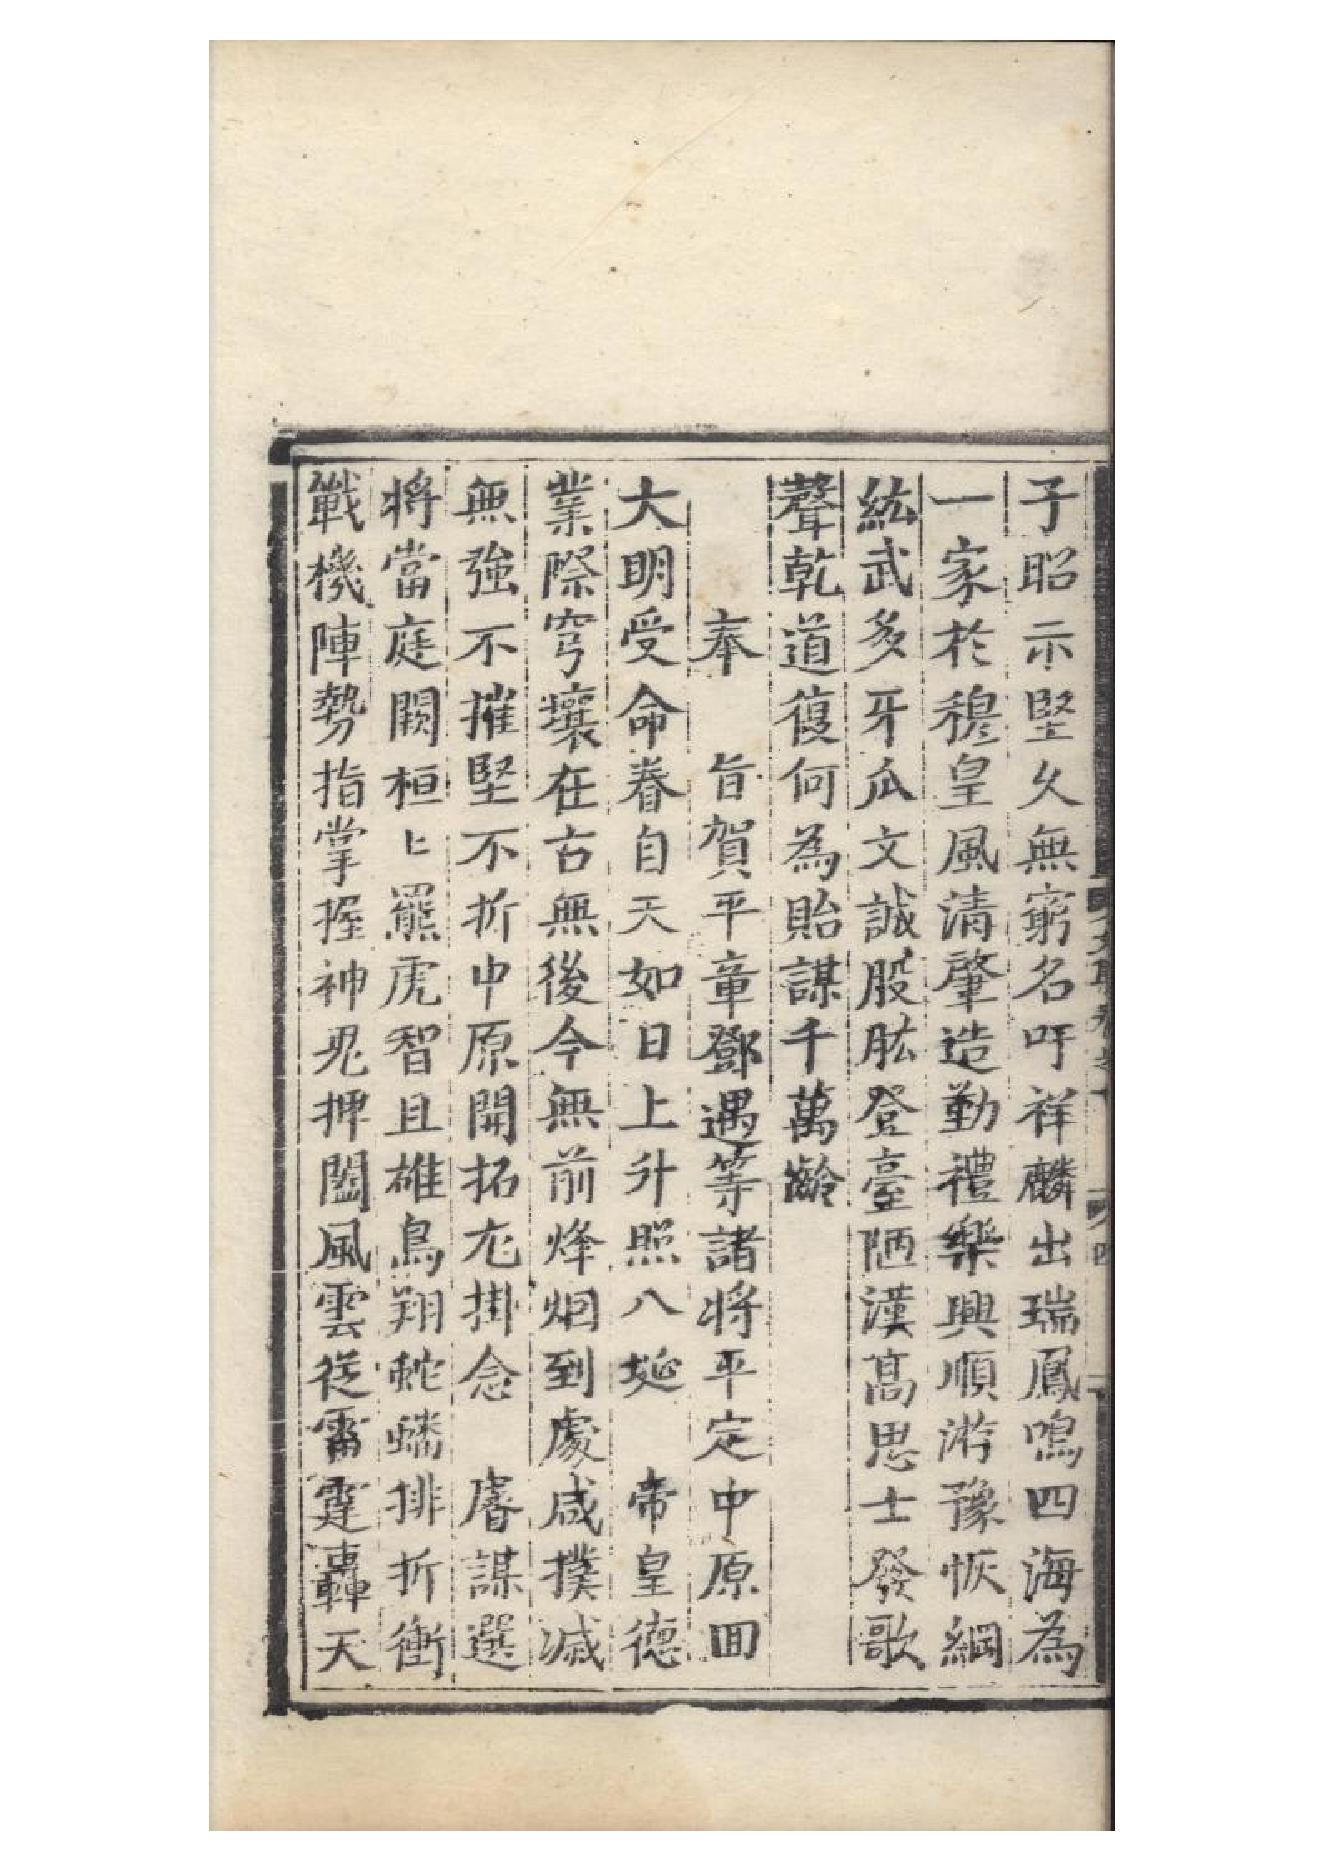 子昭示堅久無窮名吁祥麟出瑞鳳鳴四海為
一家於穆皇風清肇造勤禮樂興順游豫恢綱
紘武多牙瓜文誠股肱登臺陋漢高思士發歌
聲乾道復何為貽謀千萬齡
奉　旨賀平章鄧遇等諸將平定中原回
大明受命眷自天如日上升照八埏　帝皇德
業際穹壤在古無後今無前烽烟到處咸撲滅
無強不摧堅不折中原開拓尤掛念　睿謀選
將當庭闕桓〻羆虎智且雄鳥翔蛇蟠排折衝
戰機陣勢指掌握神鬼押闔風雲從雷霆轟天